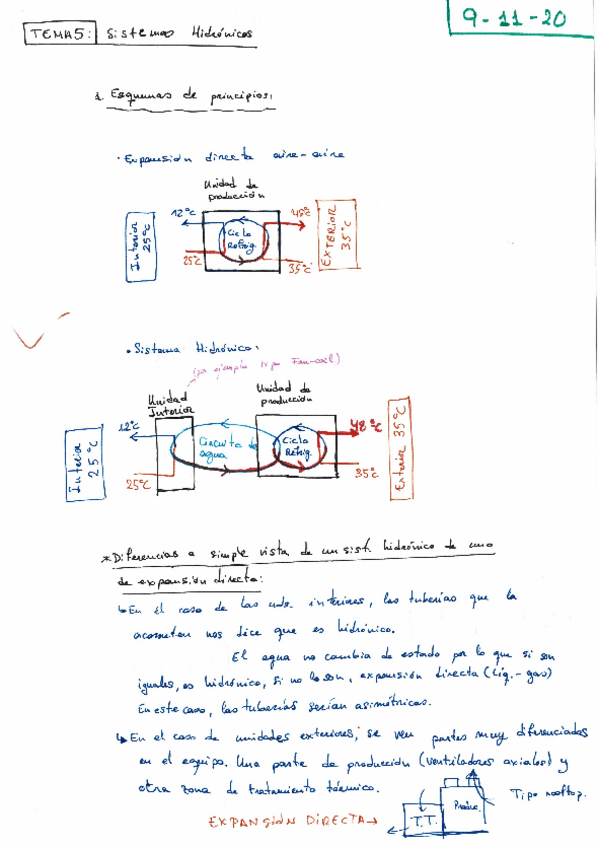 9-11-20
TEMA5: Sistemas Hidrónicos
1. Esquemas de principios:
· Expansión directa aire-aire
Unidad de
producción
12°C
48°C
Interior
25°C
Ciclo
Refrig.
EXTERIOR
35°C
25°C
35°C
· Sistema Hidrónico:
(por ejemplo tipo Fan-coil)
Unidad
Interior
Unidad de
producción
12°C
48°C
Interior
25°C
Circuito de
agua
Ciclo
Refrig.
Exterior 35°C
25°C
35°C
*Diferencias a simple vista de un sist. hidrónico de uno
de expansión directa:
↳En el caso de las uds. interiores, las tuberías que la
acometen nos dice que es hidrónico.
El agua no cambia de estado por lo que si son
iguales, es hidrónico, si no lo son, expansión directa (Líq.-gas)
En este caso, las tuberías serían asimétricas.
↳En el caso de unidades exteriores, se ven partes muy diferenciadas
en el equipo. Una parte de producción (ventiladores axiales) y
otra zona de tratamiento térmico.
Tipo rooftop.
Produc.
T.T.
EXPANSIÓN DIRECTA→